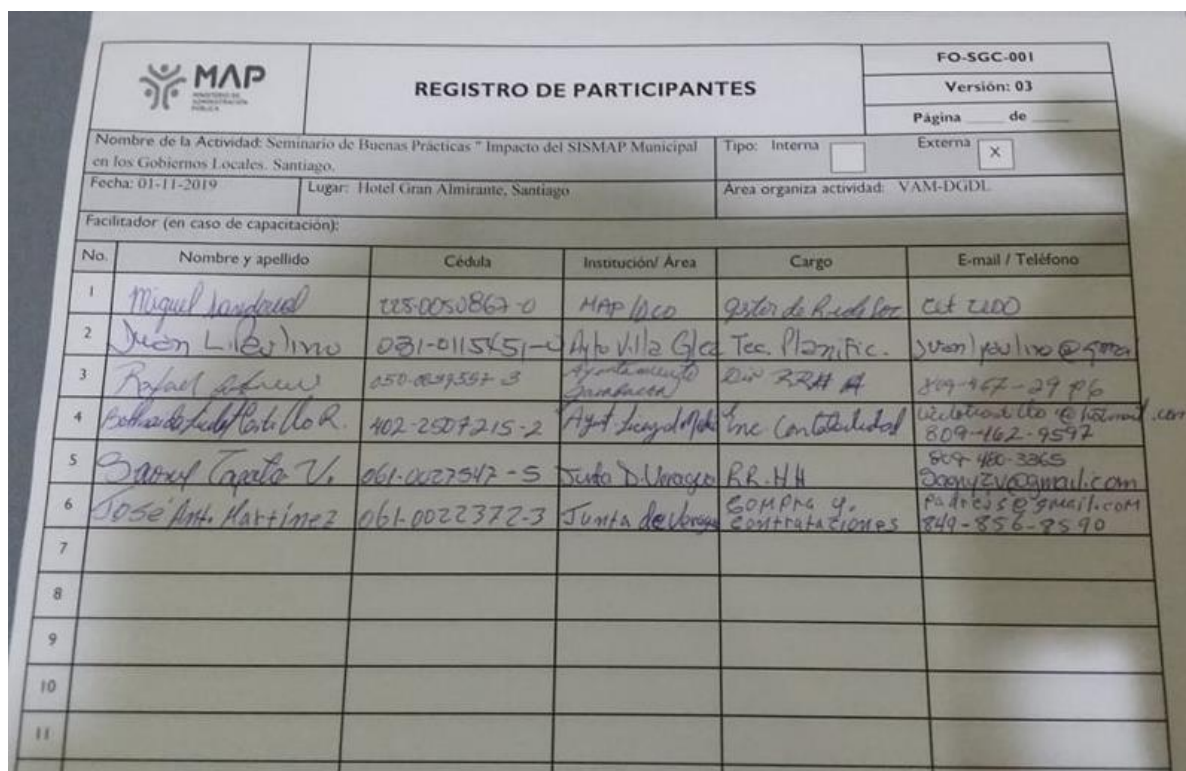 MAP
MINISTERIO DE
ADMINISTRACIÓN
PÚBLICA
REGISTRO DE PARTICIPANTES
FO-SGC-001
Versión: 03
Página ____ de ____
Nombre de la Actividad: Seminario de Buenas Prácticas " Impacto del SISMAP Municipal
en los Gobiernos Locales. Santiago.
Tipo: Interna
Externa X
Fecha: 01-11-2019 Lugar: Hotel Gran Almirante, Santiago Área organiza actividad: VAM-DGDL
Facilitador (en caso de capacitación):
No. Nombre y apellido Cédula Institución/ Área Cargo E-mail / Teléfono
1 Miguel Sandoval 225-0050867-0 MAP
2 Juan L. Paulino 031-0115451- Ayto Villa Tec. Planific.
3 Rafael Ayuntamiento
RRHH 809-467-29
4 Castillo R. 402-2507215-2 Enc Contabilidad @hotmail.com
809-462-9597
5 Zapata V. 061-0027547-5 Junta D. RR.HH 809-480-3365
@gmail.com
6 José Ant. Martínez 061-0022372-3 Junta de Compra y.
Contrataciones @gmail.com
849-856-8590
7
8
9
10
11